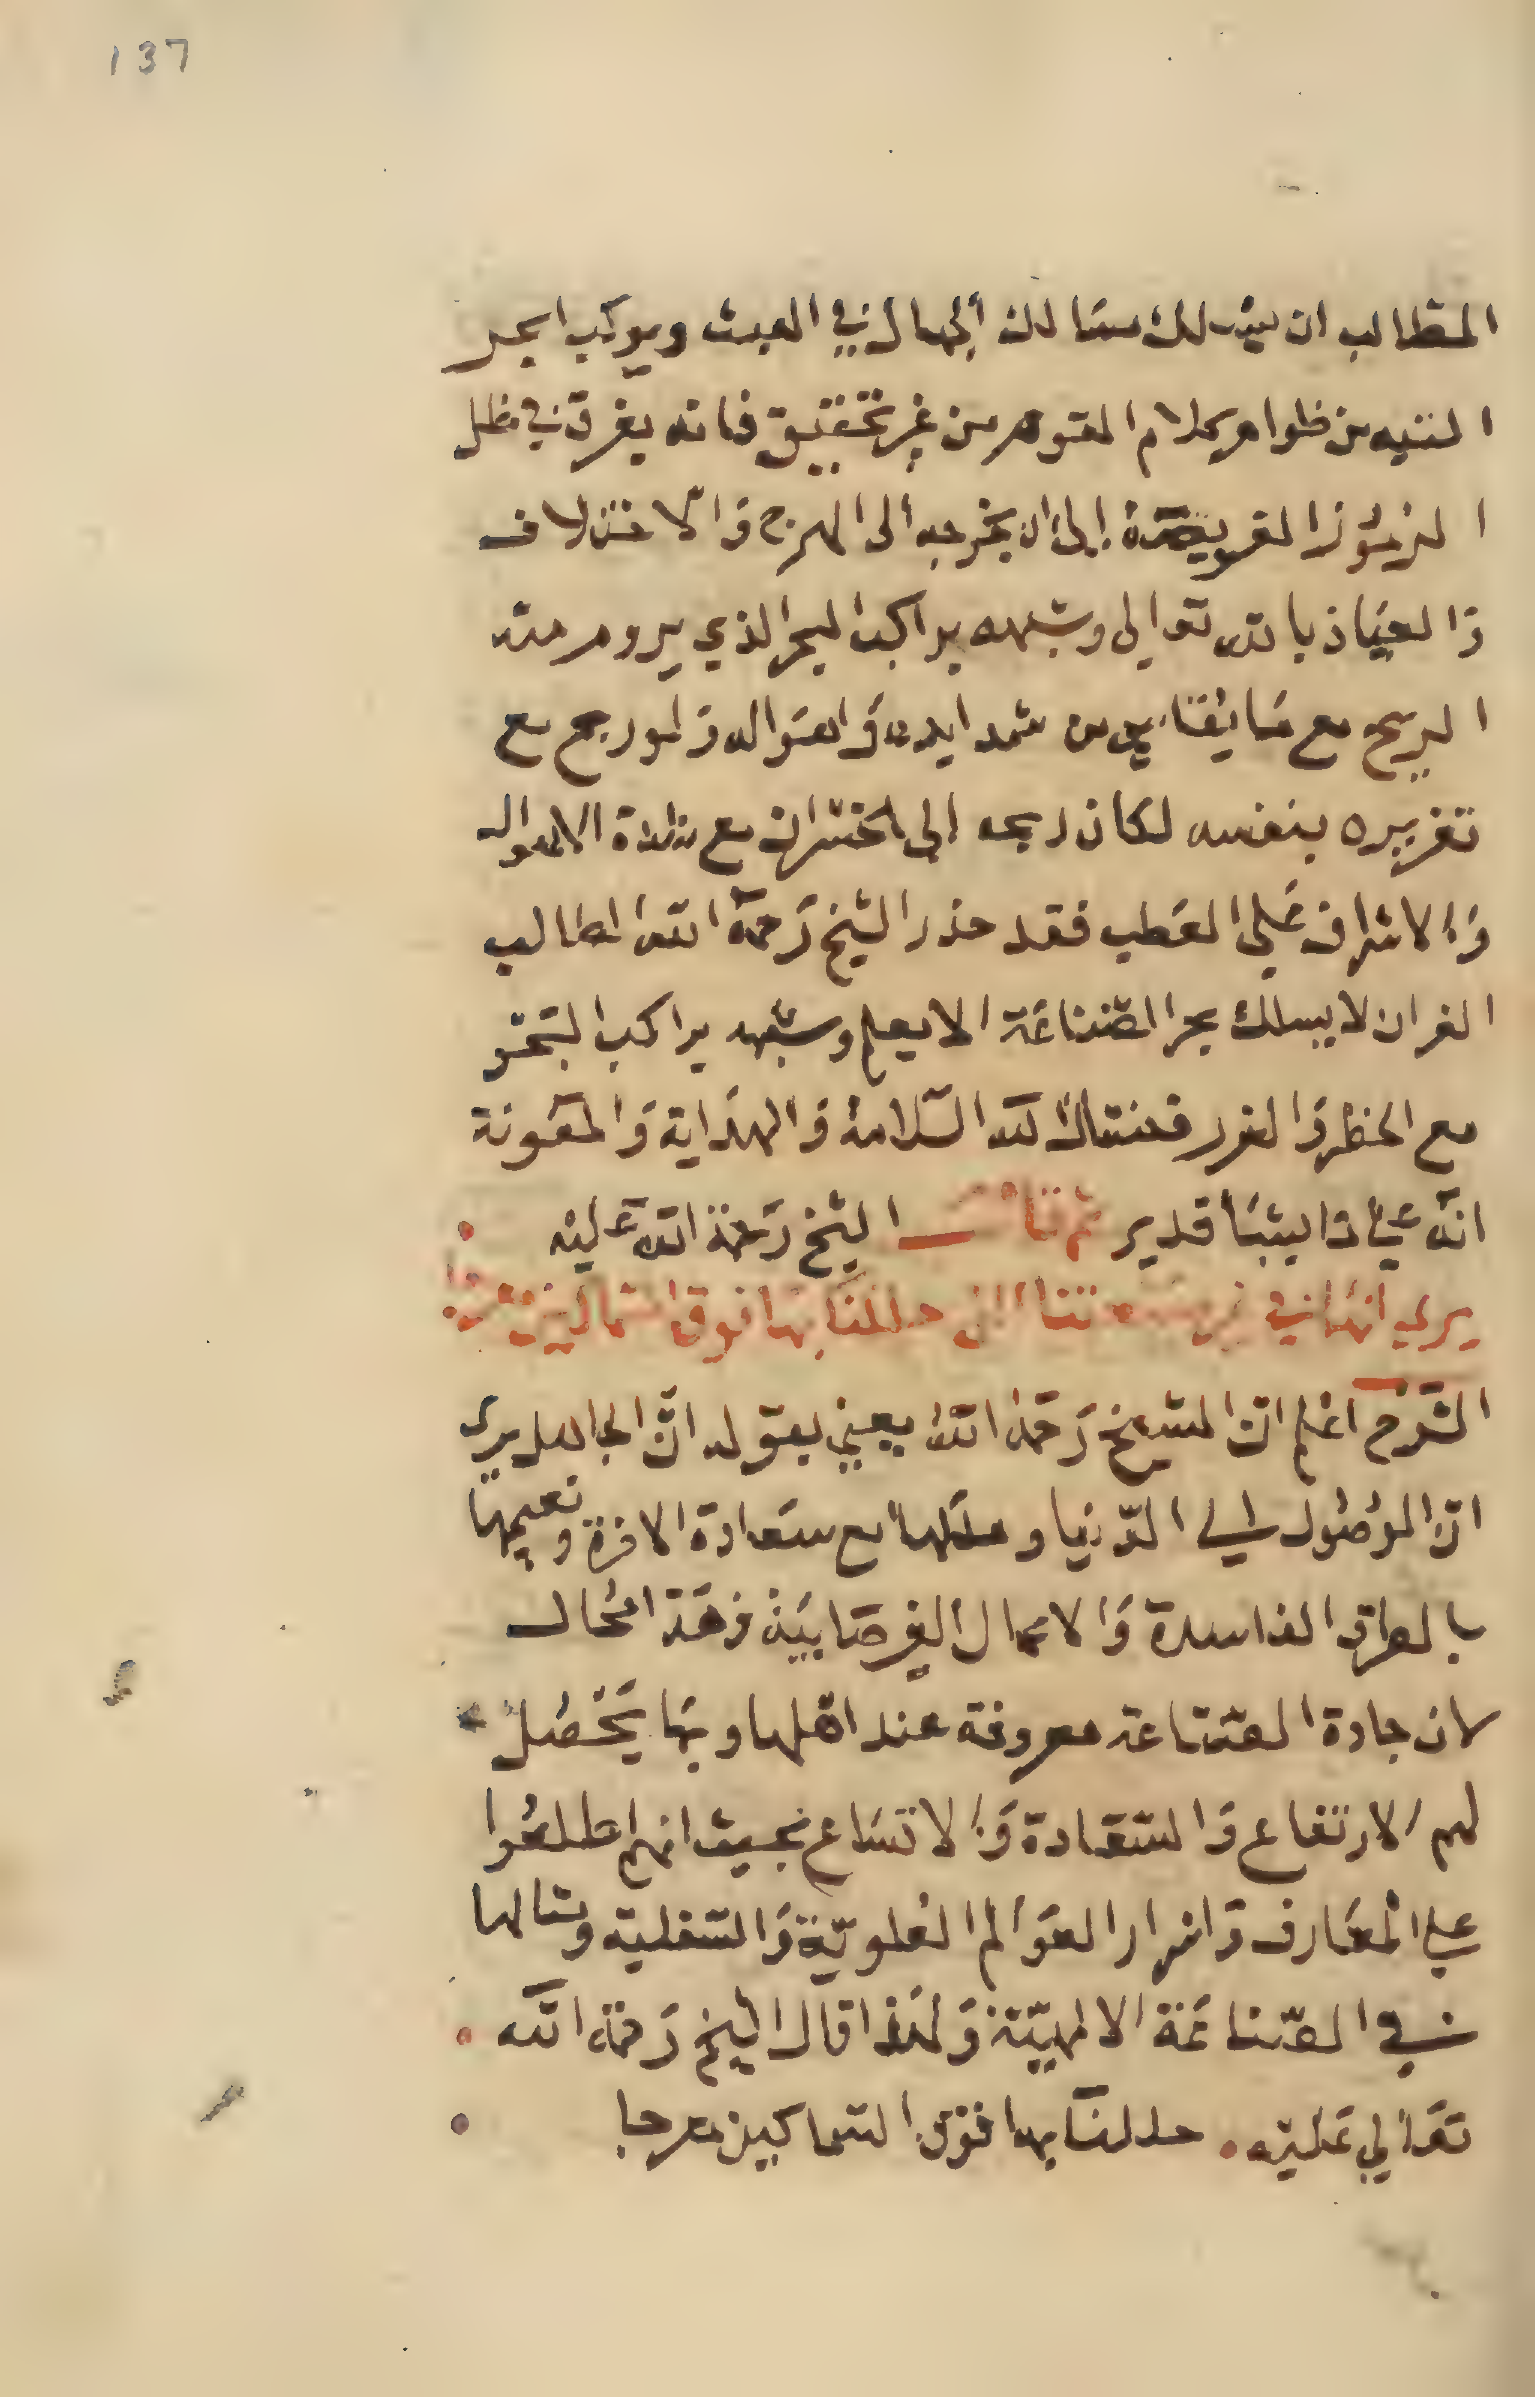 137
الطالب ان يسلك مسالك الجهال في العبث ويركب بحر
التيه من ظواهر كلام القوم من غير تحقيق فانه يغرق في
الرموز العويصة الى ان يخرجه الى الهرج والاختلاف
والعياذ بالله تعالى وشبهه براكب البحر الذي يروم منه
الربح مع ما يقاسي من شدايده واهواله ولو رجع مع
تغريره بنفسه لكان ربحه الى الخسران مع شدة الاهوال
والاشراف على العطب فقد حذر الشيخ رحمة الله الطالب
الغر ان لا يسلك بحر الصناعة الا بعلم وشبهه براكب البحر
مع الخطر والغرر فنسال الله السلامة والهداية والمعونة
انه على ما يشا قدير ثم قال الشيخ رحمة الله عليه
يرى انها في حللنا بها فوق السماكين
الشرح اعلم ان الشيخ رحمة الله يعني بقوله ان الجاهل يرى
ان الوصول الى الدنيا وملكها مع سعادة الاخرة ونعيمها
بالطرق الفاسدة والاعمال الغير صايبة وهذا محال
لان جادة الصناعة معروفة عند اهلها وبها يحصل
لهم الارتفاع والسعادة والاتساع بحيث انهم اطلعوا
على المعارف واسرار العوالم العلوية والسفلية ومثالها
في الصناعة الالهية ولهذا قال الشيخ رحمة الله
تعالى عليه . حللنا بها فوق السماكين معرجا